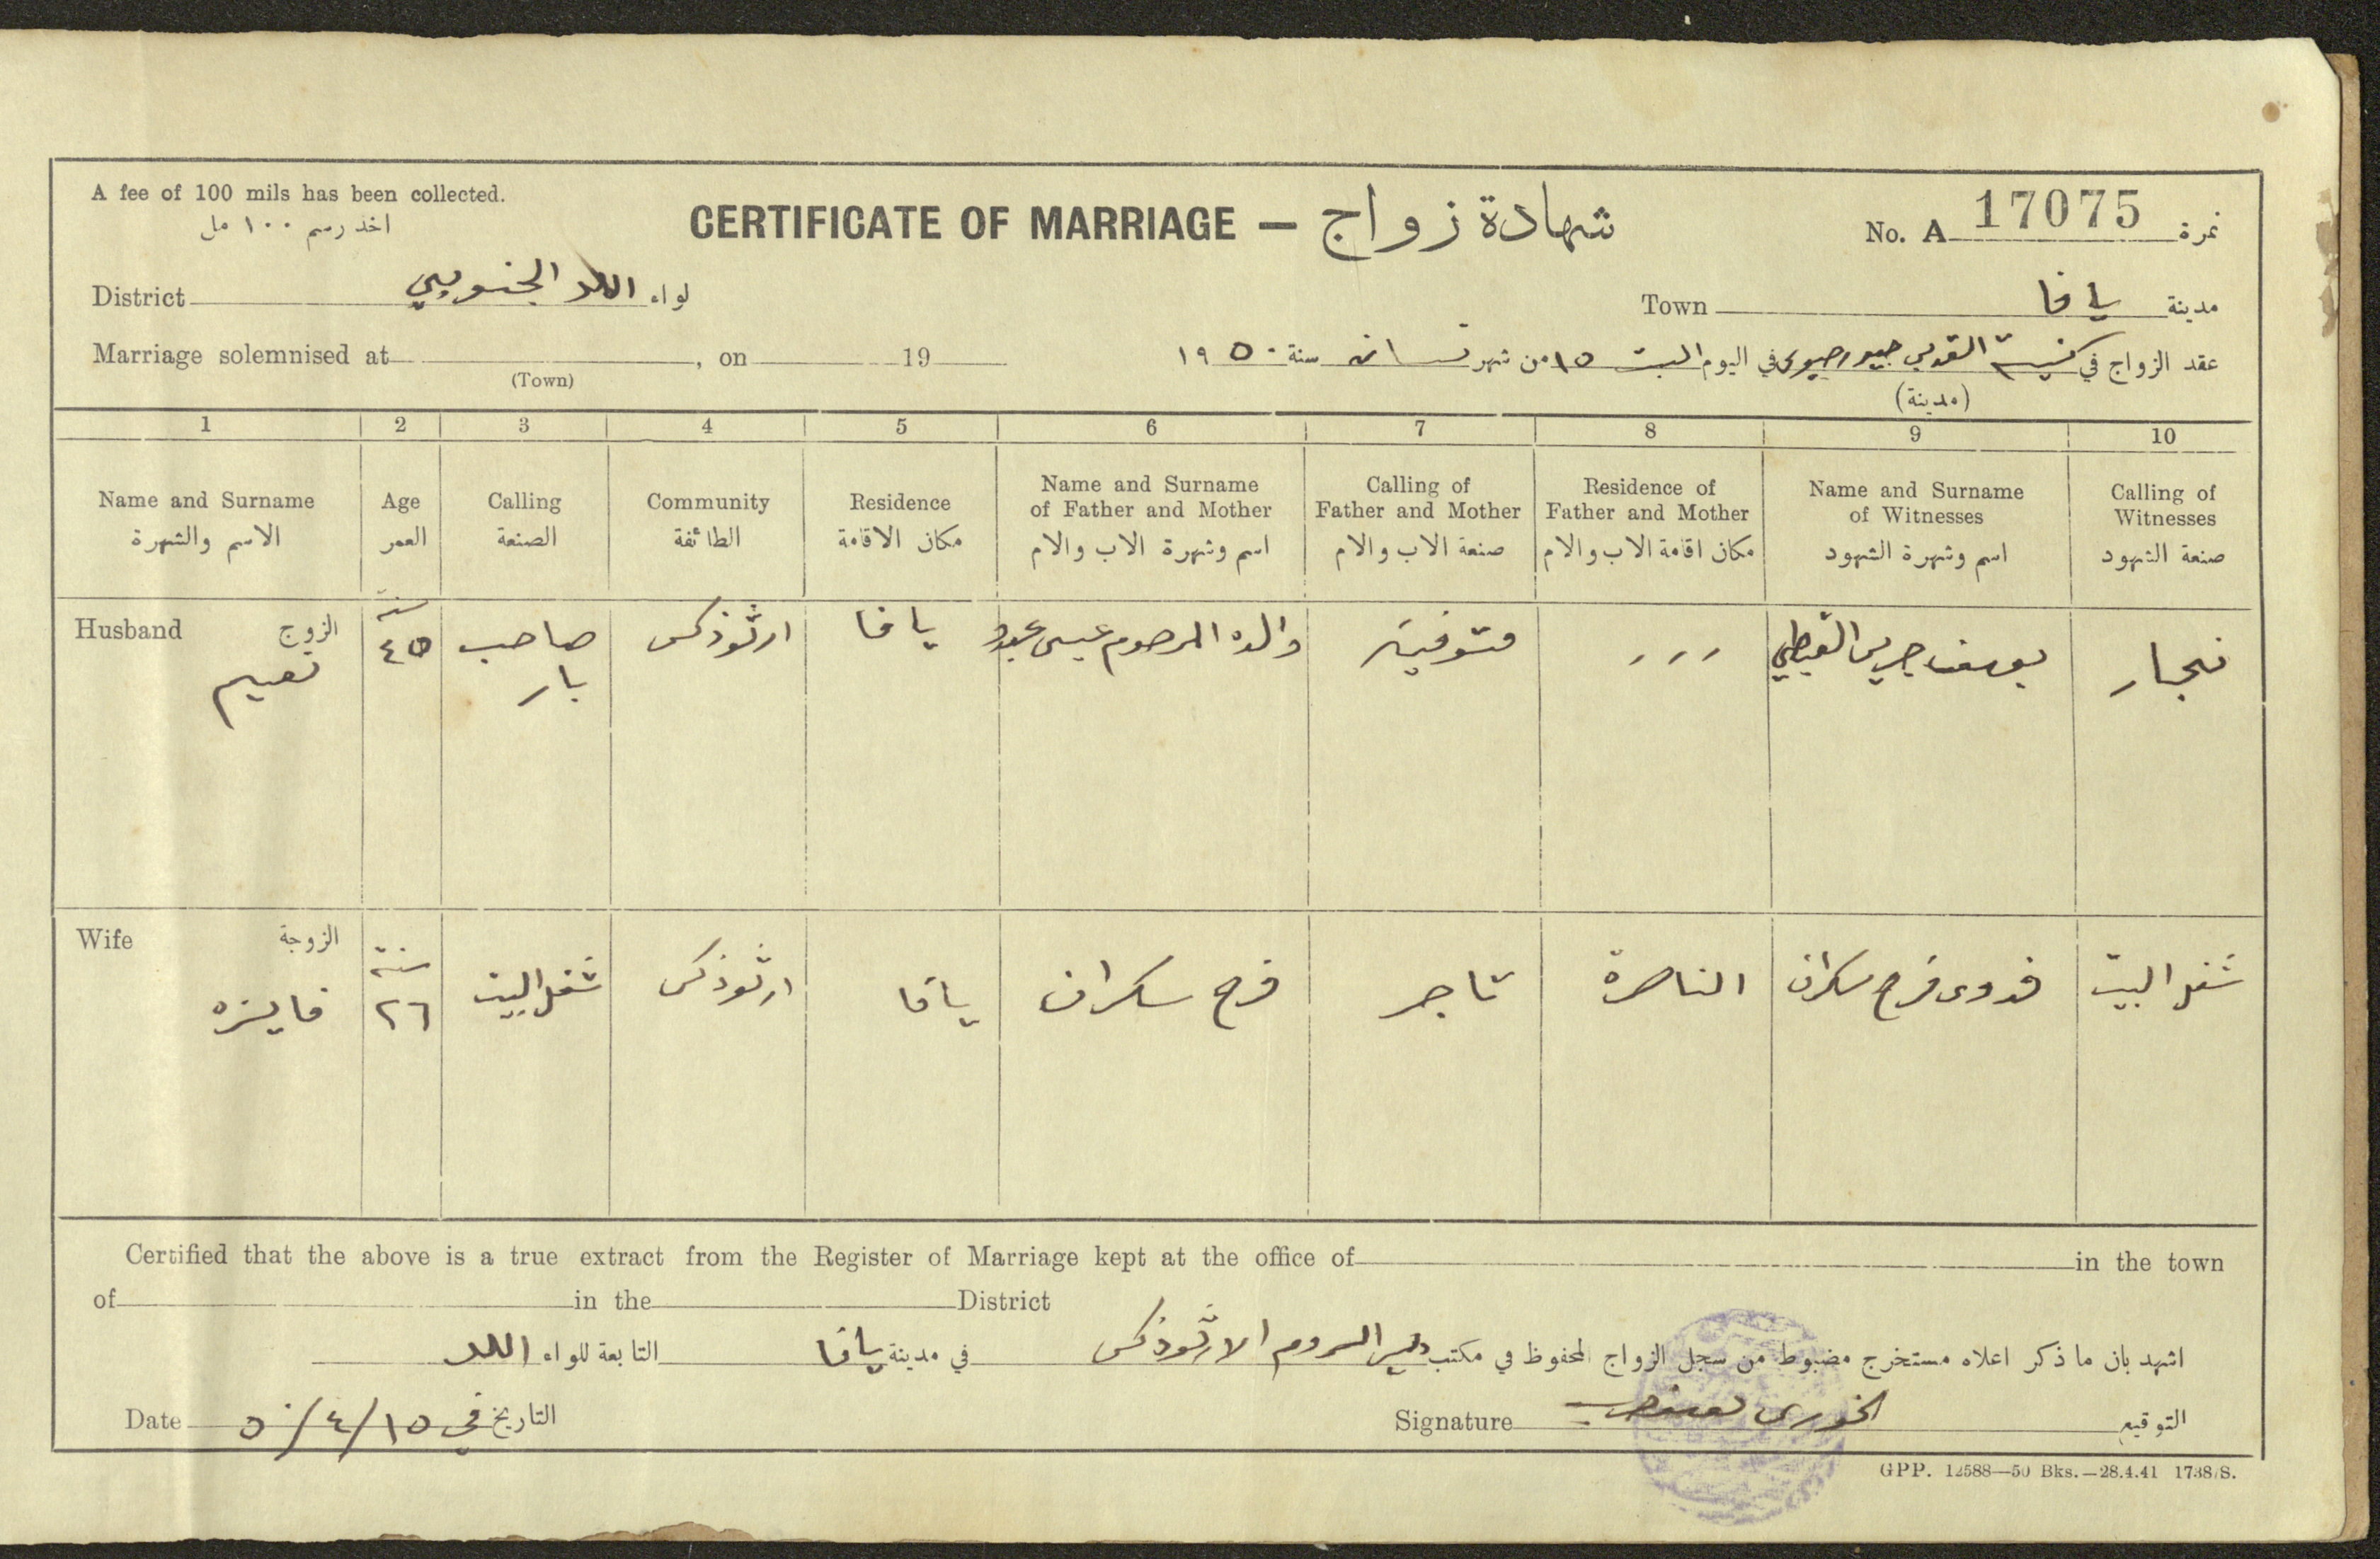 A fee of 100 mils has been collected.
اخذ رسم ١٠٠ مل
CERTIFICATE OF MARRIAGE — شهادة زواج
No. A 17075 نمرة
District لواء اللد الجنوبي
Town مدينة يافا
Marriage solemnised at , on 19
(Town)
عقد الزواج في كنيسة القديس جيورجيوس في اليوم السبت ١٥ من شهر نيسان سنة ١٩٥٠
(مدينة)
1 2 3 4 5 6 7 8 9 10
Name and Surname
الاسم والشهرة
Age
العمر
Calling
الصنعة
Community
الطائفة
Residence
مكان الاقامة
Name and Surname
of Father and Mother
اسم وشهرة الاب والام
Calling of
Father and Mother
صنعة الاب والام
Residence of
Father and Mother
مكان اقامة الاب والام
Name and Surname
of Witnesses
اسم وشهرة الشهود
Calling of
Witnesses
صنعة الشهود
Husband الزوج
نعيم
سنة
٤٥
صاحب
بار
ارثوذكس
يافا
والده المرحوم عيسى عبود
متوفية
يوسف جريس القبطي
نجار
Wife الزوجة
فايزه
سنة
٢٦
شغل البيت
ارثوذكس
يافا
فرح سكران
تاجر
الناصرة
فدوى فرح سكران
شغل البيت
Certified that the above is a true extract from the Register of Marriage kept at the office of in the town
of in the District
اشهد بان ما ذكر اعلاه مستخرج مضبوط من سجل الزواج المحفوظ في مكتب دير الروم الارثوذكس في مدينة يافا التابعة للواء اللد
Date التاريخ في ١٥/٤/٥٠
Signature الخوري التوقيع
GPP. 12588—50 Bks.—28.4.41 1738/S.